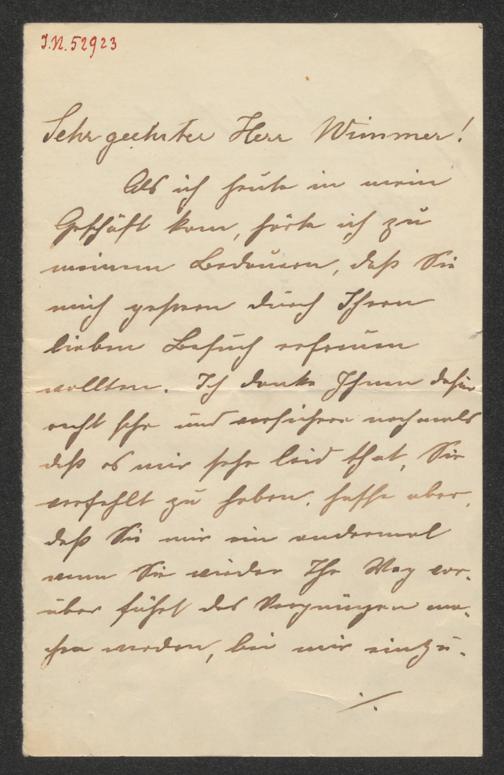 J.N. 52923
Sehr geehrter Herr Wimmer!
Als ich heute in mein
Geschäft kam, hörte ich zu
meinem Bedauern, daß Sie
mich gestern durch Ihren
lieben Besuch erfreuen
wollten. Ich danke Ihnen dafür
recht sehr und versichere nochmals
daß es mir sehr leid that, Sie
verfehlt zu haben, hoffe aber,
daß Sie mir ein andermal
wenn Sie wieder Ihr Weg vor-
über führt das Vergnügen ma-
chen werden, bei mir einzu-
./.